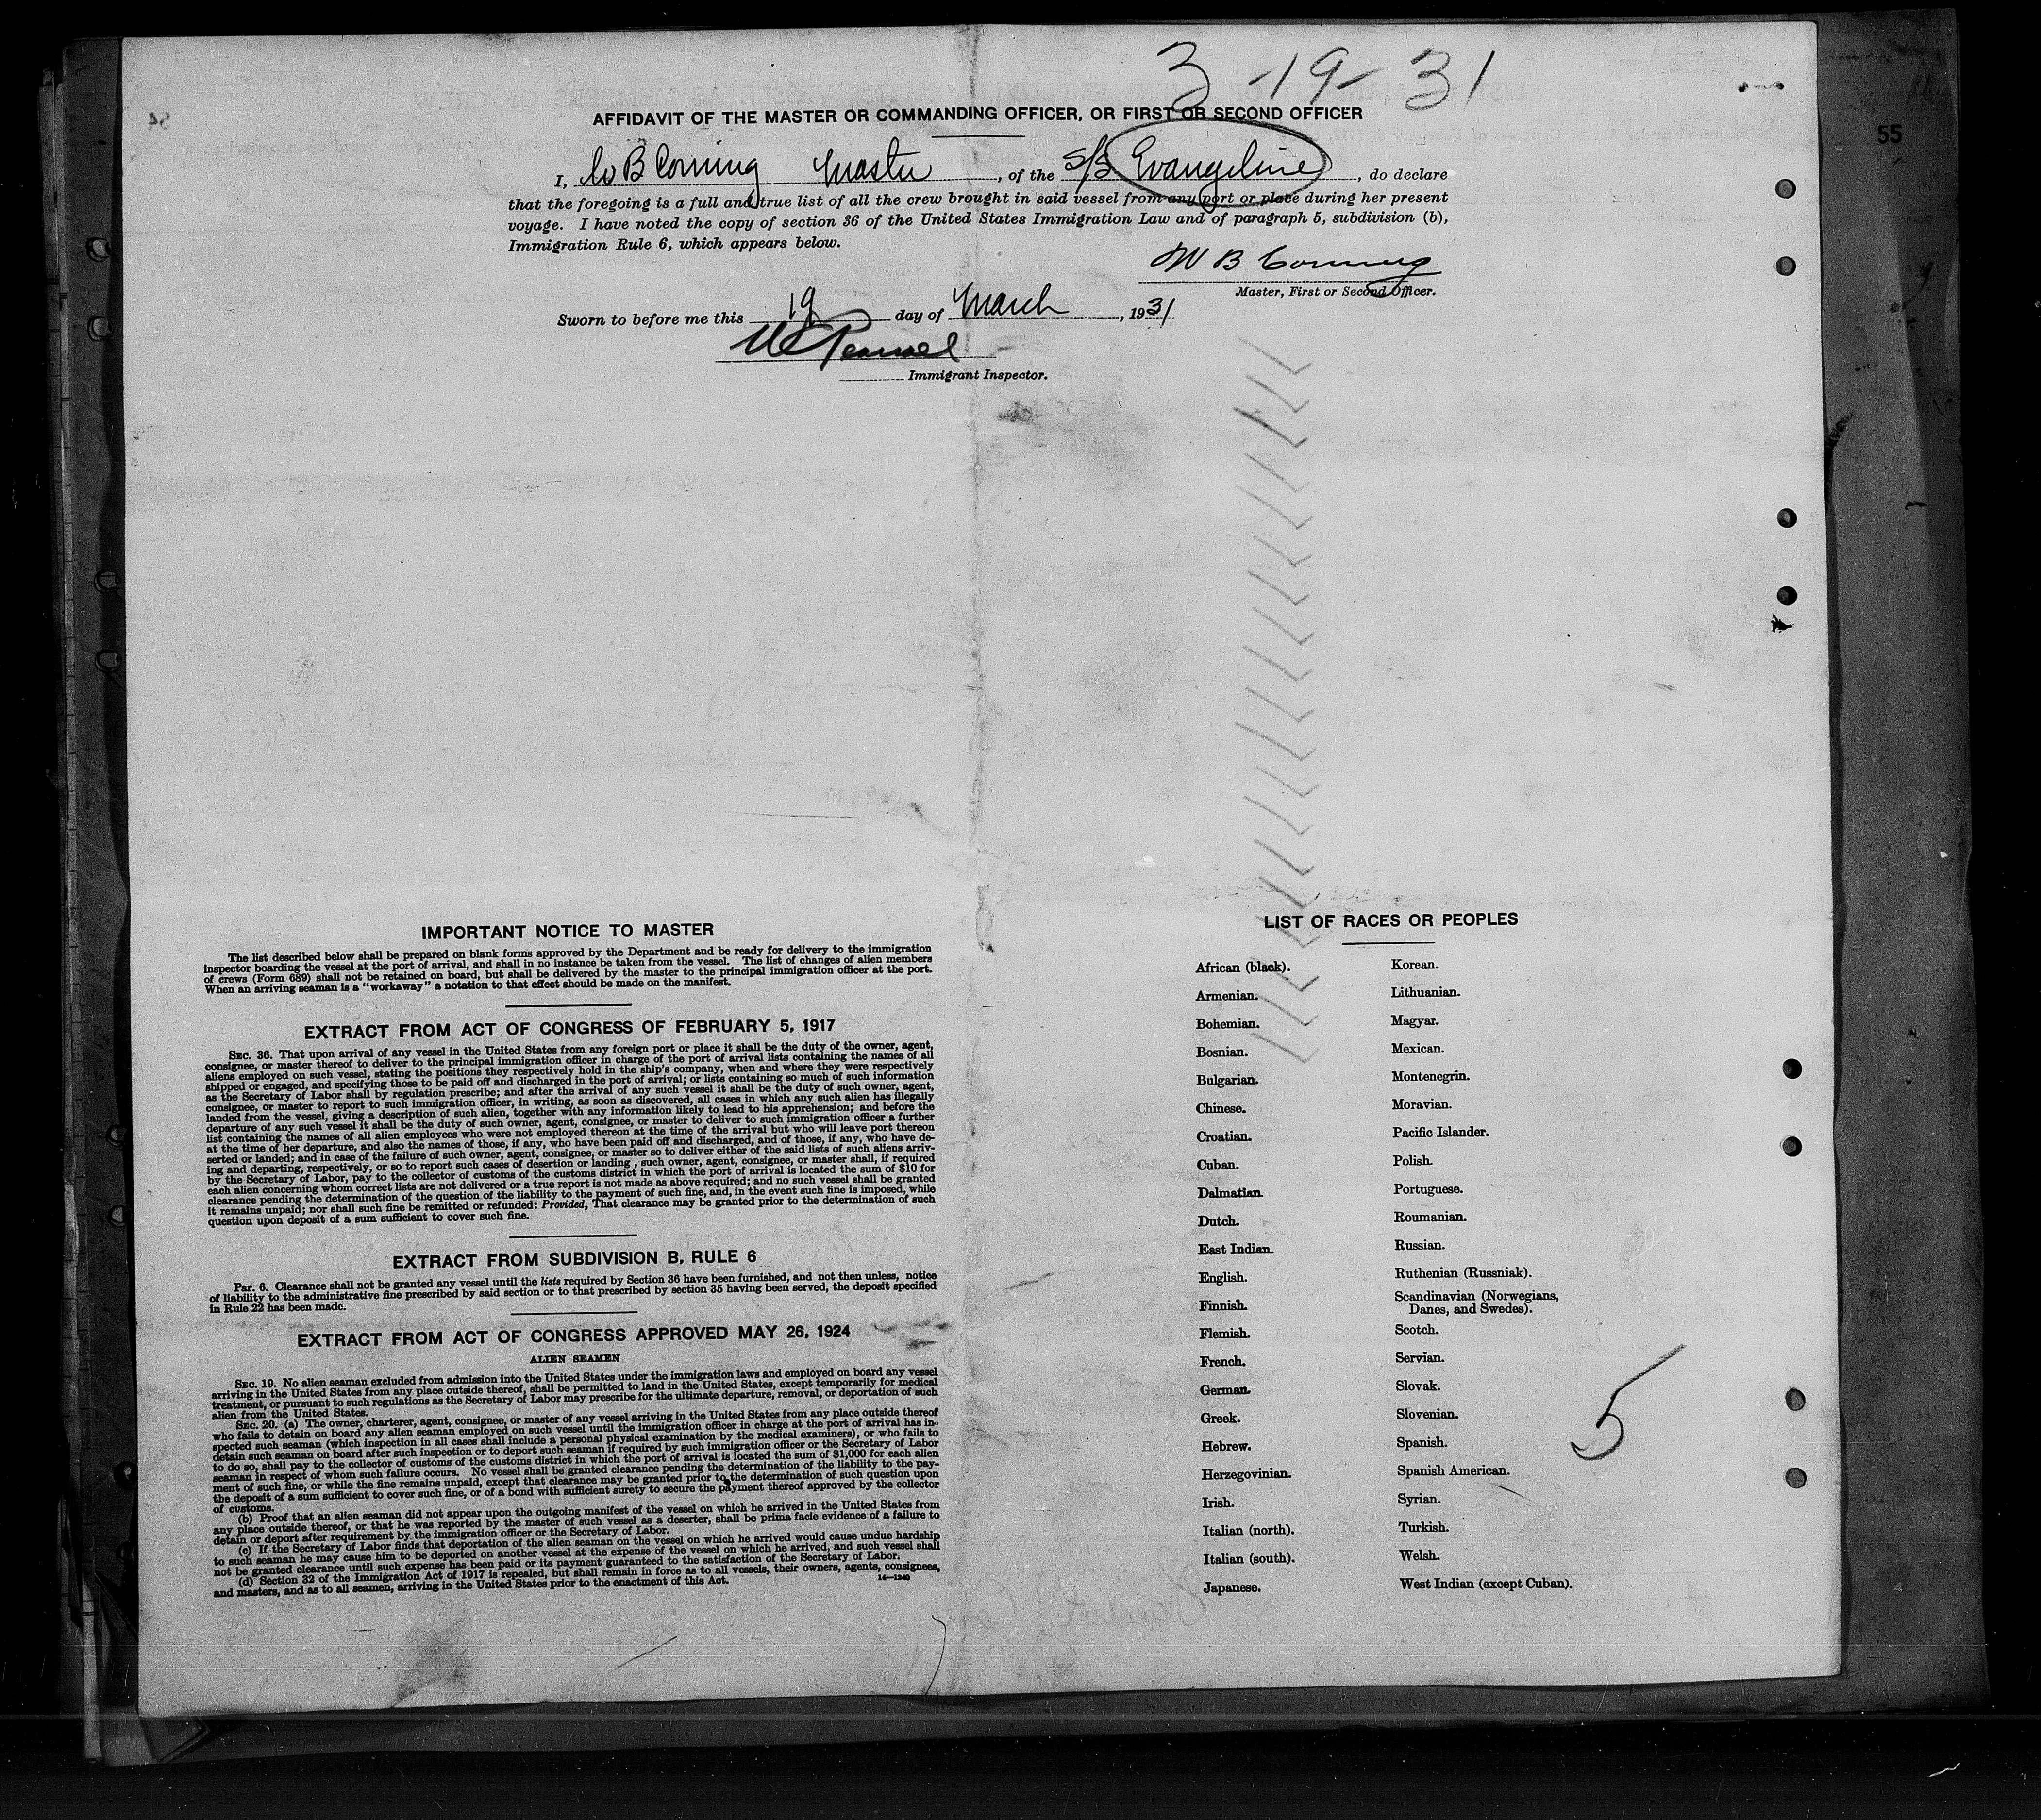 3-19-31
AFFIDAVIT OF THE MASTER OR COMMANDING OFFICER, OR FIRST OR SECOND OFFICER
55
54
I, W B Corning Master, of the S/S Evangeline, do declare
that the foregoing is a full and true list of all the crew brought in said vessel from any port or place during her present
voyage. I have noted the copy of section 36 of the United States Immigration Law and of paragraph 5, subdivision (b),
Immigration Rule 6, which appears below.
W B Corning
Master, First or Second Officer.
Sworn to before me this 19 day of March, 1931
Immigrant Inspector.
IMPORTANT NOTICE TO MASTER
The list described below shall be prepared on blank forms approved by the Department and be ready for delivery to the immigration
inspector boarding the vessel at the port of arrival, and shall in no instance be taken from the vessel. The list of changes of alien members
of crews (Form 689) shall not be retained on board, but shall be delivered by the master to the principal immigration officer at the port.
When an arriving seaman is a "workaway" a notation to that effect should be made on the manifest.
EXTRACT FROM ACT OF CONGRESS OF FEBRUARY 5, 1917
SEC. 36. That upon arrival of any vessel in the United States from any foreign port or place it shall be the duty of the owner, agent,
consignee, or master thereof to deliver to the principal immigration officer in charge of the port of arrival lists containing the names of all
aliens employed on such vessel, stating the positions they respectively hold in the ship's company, when and where they were respectively
shipped or engaged, and specifying those to be paid off and discharged in the port of arrival; or lists containing so much of such information
as the Secretary of Labor shall by regulation prescribe; and after the arrival of any such vessel it shall be the duty of such owner, agent,
consignee, or master to report to such immigration officer, in writing, as soon as discovered, all cases in which any such alien has illegally
landed from the vessel, giving a description of such alien, together with any information likely to lead to his apprehension; and before the
departure of any such vessel it shall be the duty of such owner, agent, consignee, or master to deliver to such immigration officer a further
list containing the names of all alien employees who were not employed thereon at the time of the arrival but who will leave port thereon
at the time of her departure, and also the names of those, if any, who have been paid off and discharged, and of those, if any, who have de-
serted or landed; and in case of the failure of such owner, agent, consignee, or master so to deliver either of the said lists of such aliens arriv-
ing and departing, respectively, or so to report such cases of desertion or landing , such owner, agent, consignee, or master shall, if required
by the Secretary of Labor, pay to the collector of customs of the customs district in which the port of arrival is located the sum of $10 for
each alien concerning whom correct lists are not delivered or a true report is not made as above required; and no such vessel shall be granted
clearance pending the determination of the question of the liability to the payment of such fine, and, in the event such fine is imposed, while
it remains unpaid; nor shall such fine be remitted or refunded: Provided, That clearance may be granted prior to the determination of such
question upon deposit of a sum sufficient to cover such fine.
EXTRACT FROM SUBDIVISION B, RULE 6
PAR. 6. Clearance shall not be granted any vessel until the lists required by Section 36 have been furnished, and not then unless, notice
of liability to the administrative fine prescribed by said section or to that prescribed by section 35 having been served, the deposit specified
in Rule 22 has been made.
EXTRACT FROM ACT OF CONGRESS APPROVED MAY 26, 1924
ALIEN SEAMEN
SEC. 19. No alien seaman excluded from admission into the United States under the immigration laws and employed on board any vessel
arriving in the United States from any place outside thereof, shall be permitted to land in the United States, except temporarily for medical
treatment, or pursuant to such regulations as the Secretary of Labor may prescribe for the ultimate departure, removal, or deportation of such
alien from the United States.
SEC. 20. (a) The owner, charterer, agent, consignee, or master of any vessel arriving in the United States from any place outside thereof
who fails to detain on board any alien seaman employed on such vessel until the immigration officer in charge at the port of arrival has in-
spected such seaman (which inspection in all cases shall include a personal physical examination by the medical examiners), or who fails to
detain such seaman on board after such inspection or to deport such seaman if required by such immigration officer or the Secretary of Labor
to do so, shall pay to the collector of customs of the customs district in which the port of arrival is located the sum of $1,000 for each alien
seaman in respect of whom such failure occurs. No vessel shall be granted clearance pending the determination of the liability to the pay-
ment of such fine, or while the fine remains unpaid, except that clearance may be granted prior to the determination of such question upon
the deposit of a sum sufficient to cover such fine, or of a bond with sufficient surety to secure the payment thereof approved by the collector
of customs.
(b) Proof that an alien seaman did not appear upon the outgoing manifest of the vessel on which he arrived in the United States from
any place outside thereof, or that he was reported by the master of such vessel as a deserter, shall be prima facie evidence of a failure to
detain or deport after requirement by the immigration officer or the Secretary of Labor.
(c) If the Secretary of Labor finds that deportation of the alien seaman on the vessel on which he arrived would cause undue hardship
to such seaman he may cause him to be deported on another vessel at the expense of the vessel on which he arrived, and such vessel shall
not be granted clearance until such expense has been paid or its payment guaranteed to the satisfaction of the Secretary of Labor.
(d) Section 32 of the Immigration Act of 1917 is repealed, but shall remain in force as to all vessels, their owners, agents, consignees,
and masters, and as to all seamen, arriving in the United States prior to the enactment of this Act.
14—1240
LIST OF RACES OR PEOPLES
African (black).
Armenian.
Bohemian.
Bosnian.
Bulgarian.
Chinese.
Croatian.
Cuban.
Dalmatian.
Dutch.
East Indian.
English.
Finnish.
Flemish.
French.
German.
Greek.
Hebrew.
Herzegovinian.
Irish.
Italian (north).
Italian (south).
Japanese.
Korean.
Lithuanian.
Magyar.
Mexican.
Montenegrin.
Moravian.
Pacific Islander.
Polish.
Portuguese.
Roumanian.
Russian.
Ruthenian (Russniak).
Scandinavian (Norwegians,
Danes, and Swedes).
Scotch.
Servian.
Slovak.
Slovenian.
Spanish.
Spanish American.
Syrian.
Turkish.
Welsh.
West Indian (except Cuban).
5